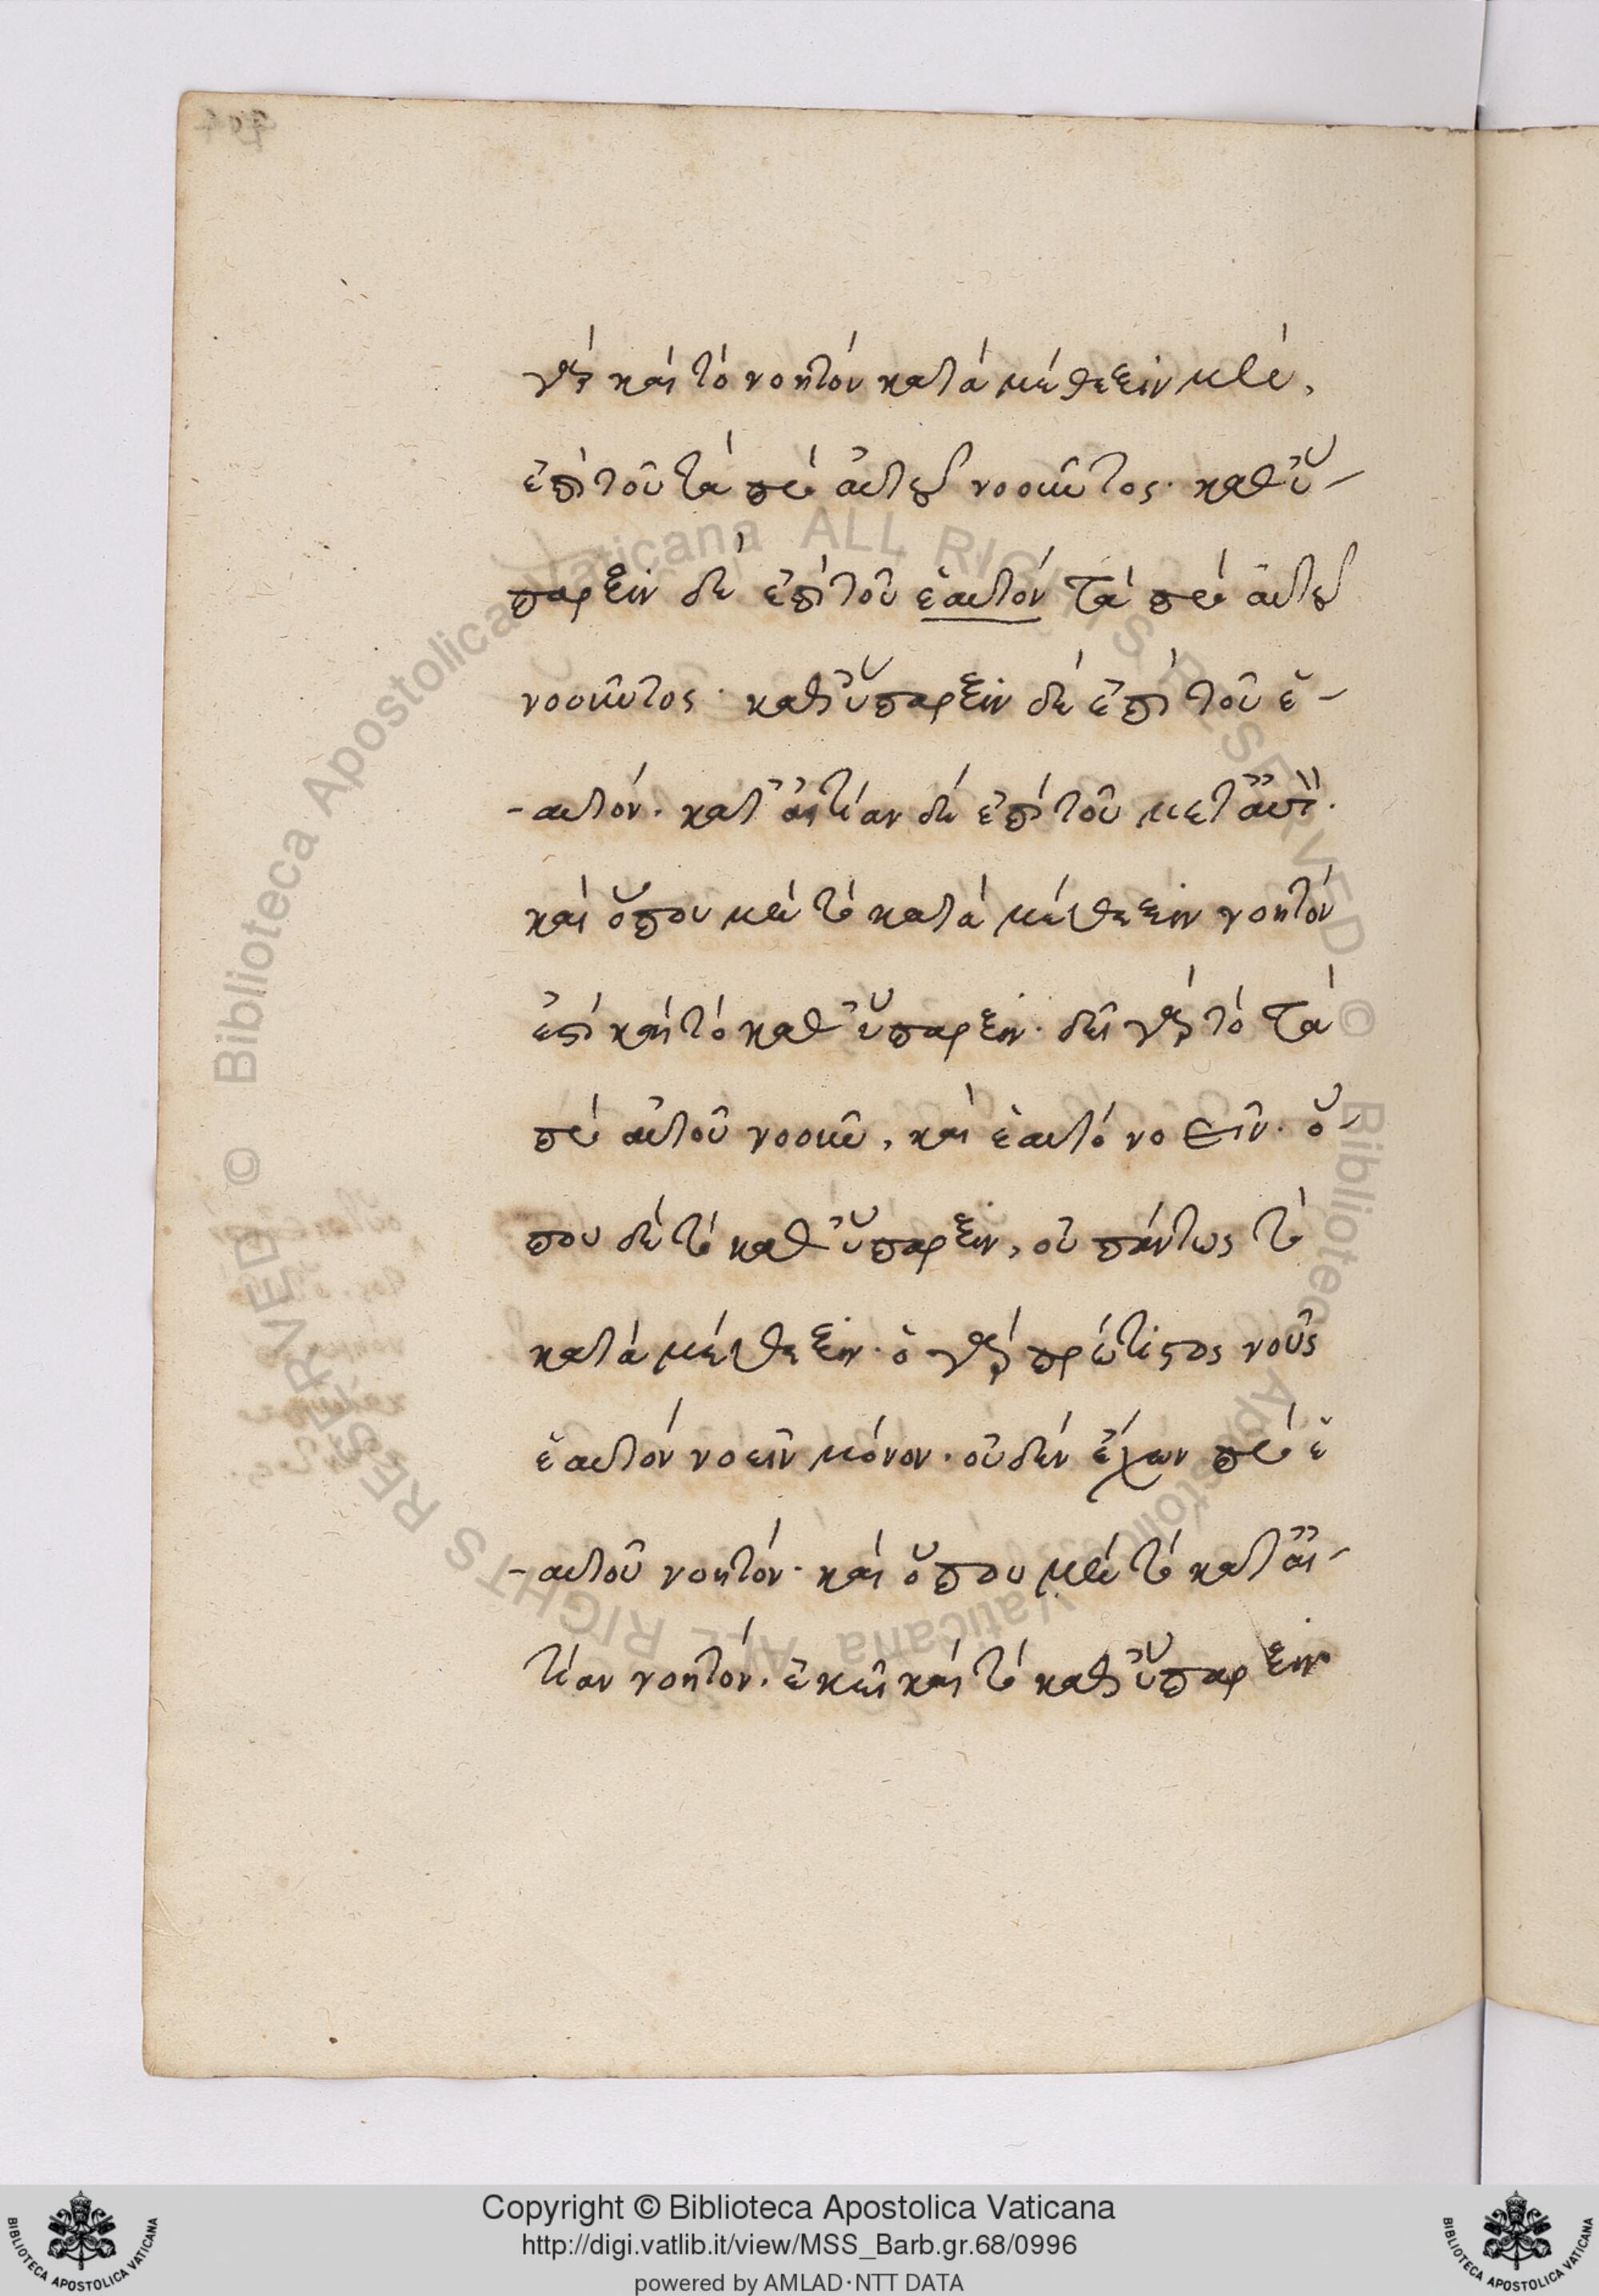 γὰρ καὶ τὸ νοητὸν κατὰ μέθεξιν μὲν,
ἐπὶ τοῦ τὰ πρὸ αὐτοῦ νοοῦντος· καθ' ὕ-
παρξιν δὲ ἐπὶ τοῦ ἑαυτὸν τὰ πρὸ αὐτοῦ
νοοῦντος· καθ' ὕπαρξιν δὲ ἐπὶ τοῦ ἑ-
-αυτόν. κατ' αἰτίαν δὲ ἐπὶ τοῦ μετ' αὐτὸ.
καὶ ὅπου μὲν τὸ κατὰ μέθεξιν νοητὸν
ἐστὶ καὶ τὸ καθ' ὕπαρξιν· δεῖ γὰρ τὸ τὰ
πρὸ αὐτοῦ νοοῦν, καὶ ἑαυτὸ νοεῖν. ὅ-
που δὲ τὸ καθ' ὕπαρξιν, οὐ πάντως τὸ
κατὰ μέθεξιν· ὁ γὰρ πρώτιστος νοῦς
ἑαυτὸν νοεῖν μόνον. οὐδὲν ἔχων πρὸ ἑ
-αυτοῦ νοητόν· καὶ ὅπου μὲν τὸ κατ' αἰ-
τίαν νοητόν. ἐκεῖ καὶ τὸ καθ' ὕπαρξιν·
© Biblioteca Apostolica Vaticana ALL RIGHTS RESERVED © Biblioteca Apostolica Vaticana ALL RIGHTS RESERVED
Copyright © Biblioteca Apostolica Vaticana
http://digi.vatlib.it/view/MSS_Barb.gr.68/0996
powered by AMLAD·NTT DATA
BIBLIOTECA APOSTOLICA VATICANA
BIBLIOTECA APOSTOLICA VATICANA